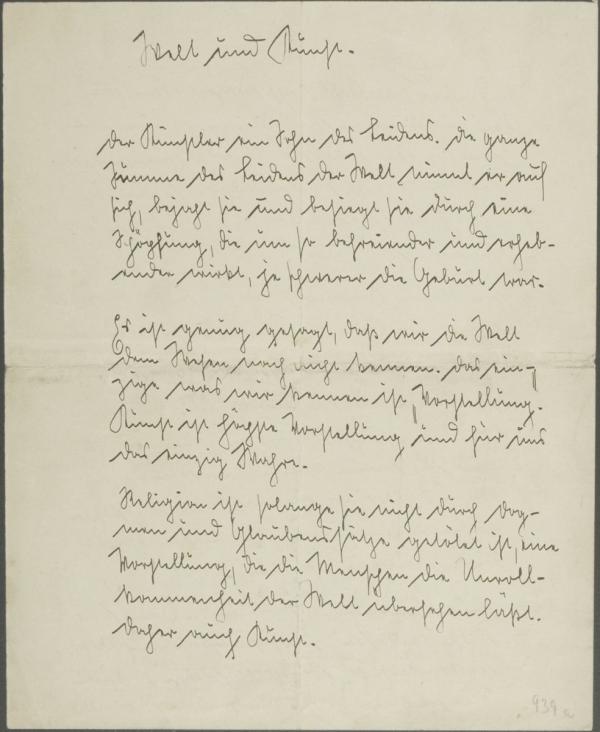 Welt und Kunst.
der Künstler ein Sohn des Leidens. die ganze
Summe des Leidens der Welt nimmt er auf
sich, bejaht sie und besiegt sie durch eine
Schöpfung, die um so befreiender und erheb-
ender wirkt, je schwerer die Geburt war.
Es ist genug gesagt, daß wir die Welt
dem Wesen nach nicht kennen. das ein-
zige was wir kennen ist, Vorstellung.
Kunst ist höchste Vorstellung und für uns
das einzig Wahre.
Religion ist solange sie nicht durch Dog-
men und Glaubenssätze getötet ist, eine
Vorstellung, die die Menschen die Unvoll-
kommenheit der Welt übersehen läßt.
daher auch Kunst.
939 a